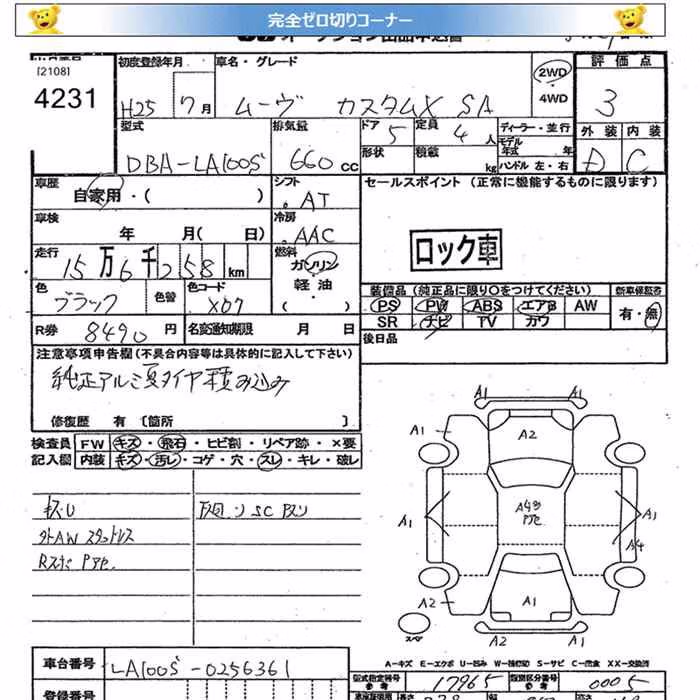 完全ゼロ切りコーナー
オークション出品申込書
[2108]
4231
初度登録年月
H25 7月
車名・グレード
ムーヴ カスタムX SA
2WD
・
4WD
評価点
3
外装 内装
D C
型式
DBA-LA100S
排気量
660 cc
ドア 5
定員 4人
形状
積載 kg
ディーラー・並行
モデル年式 年
ハンドル 左・右
車歴
自家用・( )
シフト
AT
セールスポイント (正常に機能するものに限ります)
車検
年 月( 日)
冷房
AAC
ロック車
走行
15万6千258km
燃料
ガソリン
軽・油
( )
色
ブラック
色替
色コード
X07
装備品 (純正品に限り○をつけてください)
PS PW ABS エアB AW
SR ナビ TV カワ
新車保証書
有・無
R券 8490円
名変通知期限 月 日
後日品
注意事項申告欄(不具合内容等は具体的に記入して下さい)
純正アルミ夏タイヤ積み込み
修復歴 有 〔箇所 〕
検査員 FW キズ・飛石・ヒビ割・リペア跡・×要
記入欄 内装 キズ・汚レ・コゲ・穴・スレ・キレ・破レ
外AWスタットレス
A1
A1
A1
A2
A1
A1
A4
A2
A1
A2
A1
スペア
A-キズ E-エクボ U-凹み W-補修跡 S-サビ C-腐食 XX-交換済
車台番号 LA100S-0256361
登録番号
型式指定番号 参考 17965
類別区分番号 参考 0005